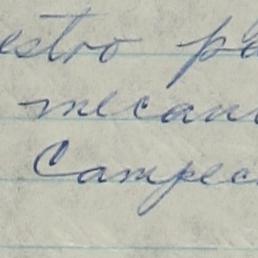 estro pa
mecan
Campec